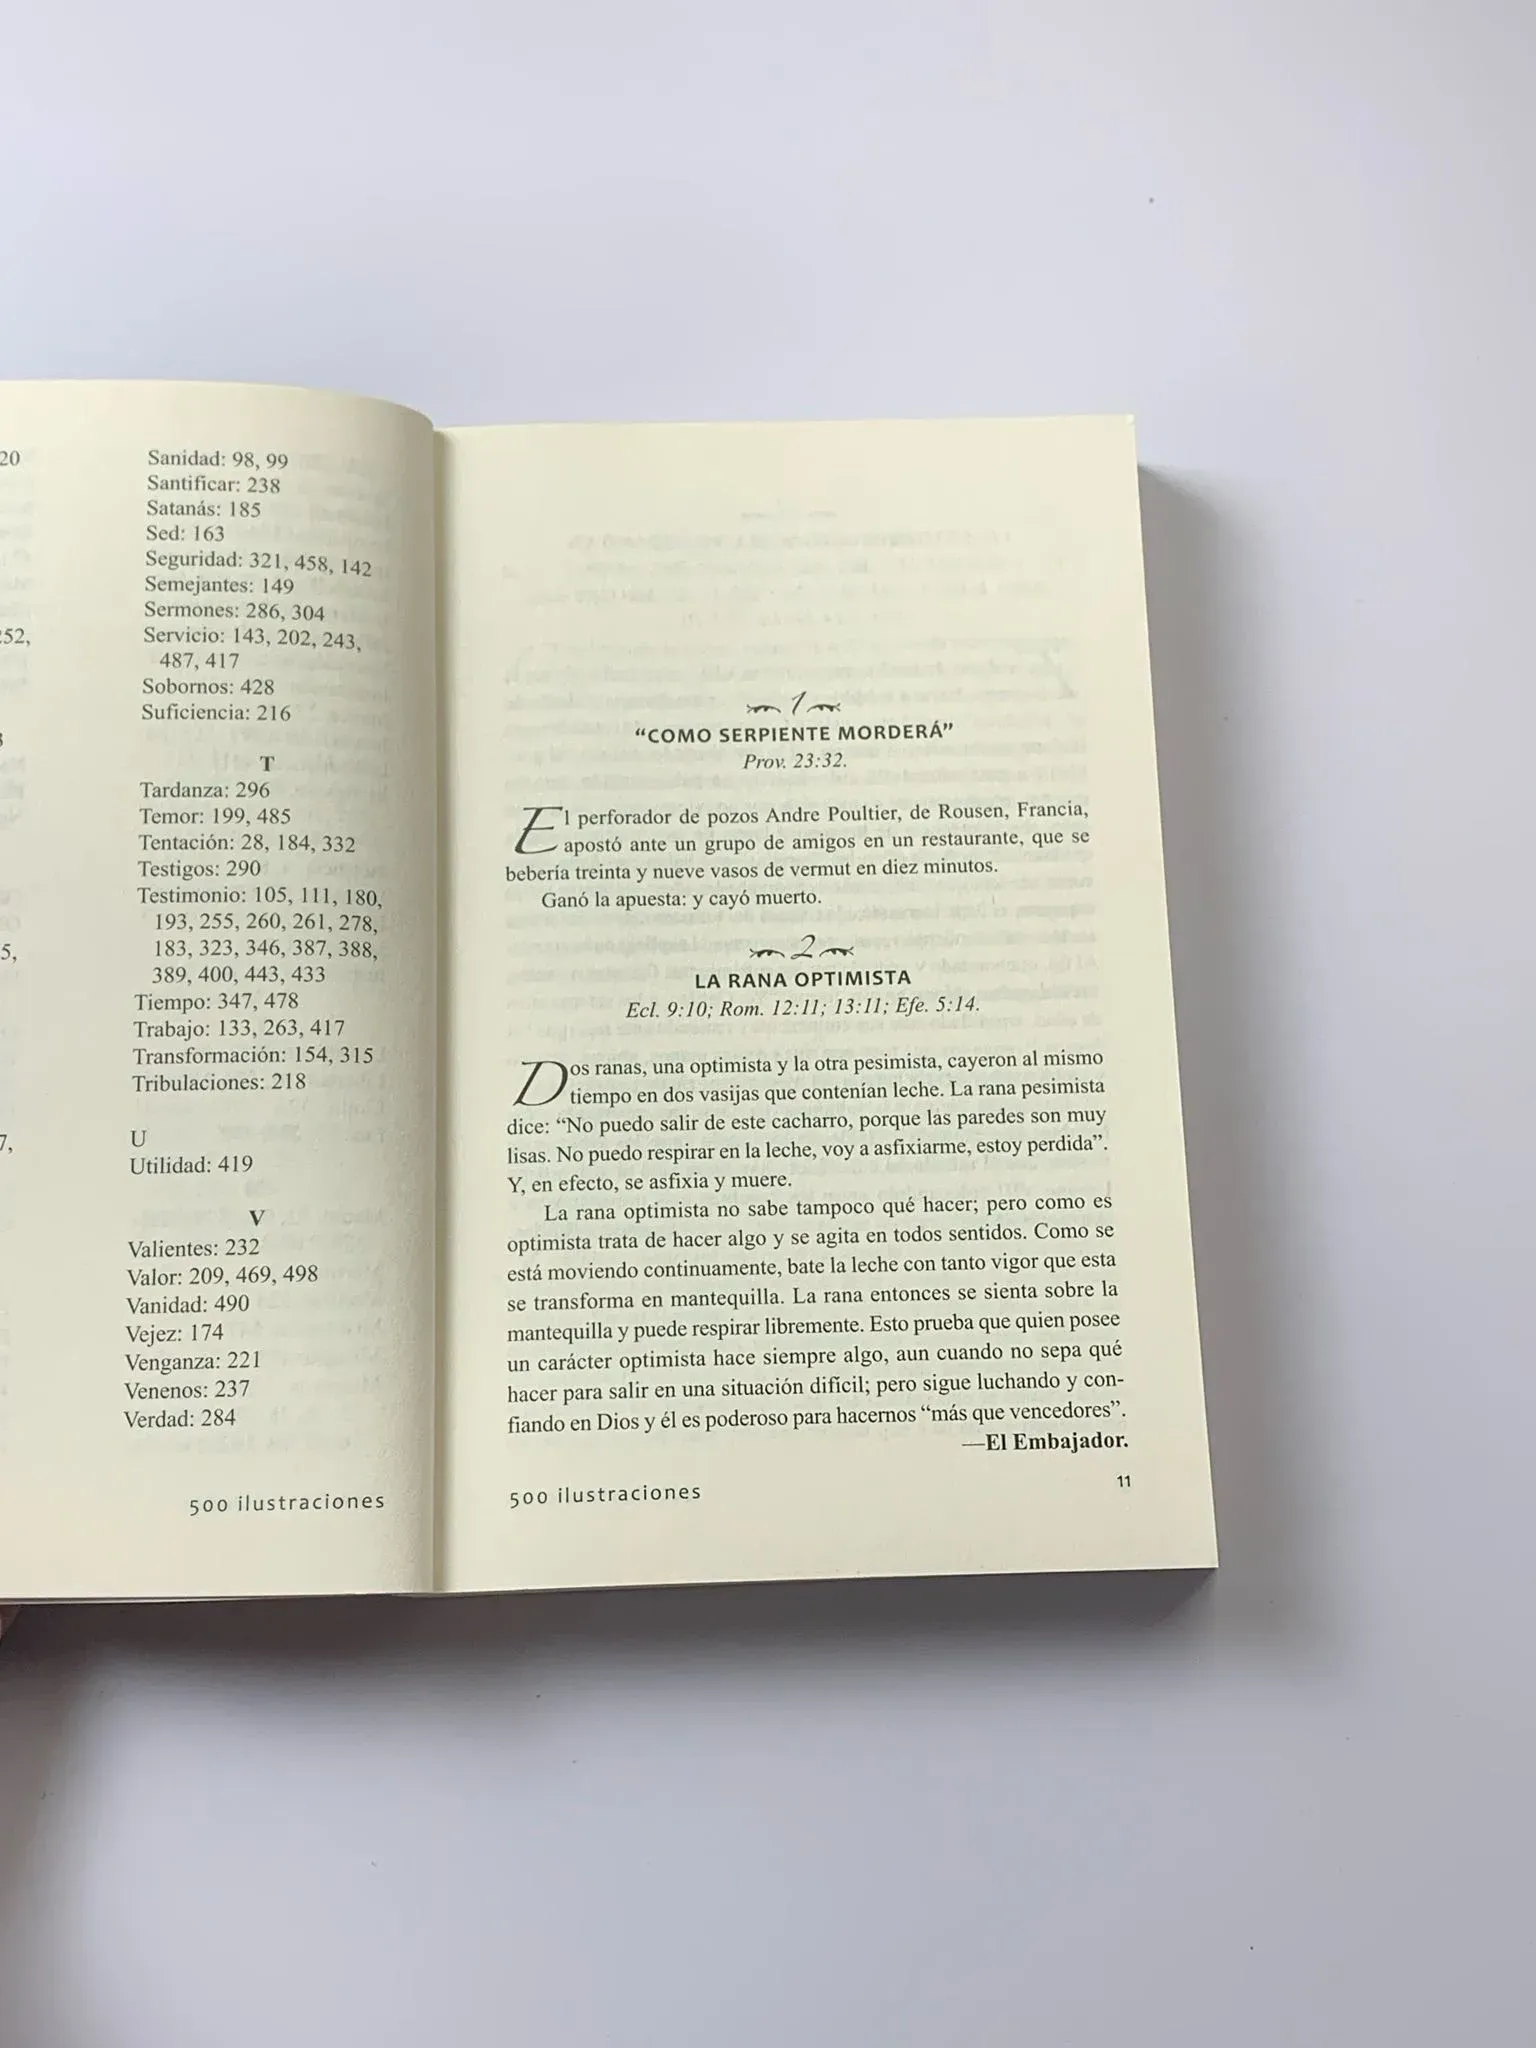 20
252,
3
5,
7,
Sanidad: 98, 99
Santificar: 238
Satanás: 185
Sed: 163
Seguridad: 321, 458, 142
Semejantes: 149
Sermones: 286, 304
Servicio: 143, 202, 243,
487, 417
Sobornos: 428
Suficiencia: 216
T
Tardanza: 296
Temor: 199, 485
Tentación: 28, 184, 332
Testigos: 290
Testimonio: 105, 111, 180,
193, 255, 260, 261, 278,
183, 323, 346, 387, 388,
389, 400, 443, 433
Tiempo: 347, 478
Trabajo: 133, 263, 417
Transformación: 154, 315
Tribulaciones: 218
U
Utilidad: 419
V
Valientes: 232
Valor: 209, 469, 498
Vanidad: 490
Vejez: 174
Venganza: 221
Venenos: 237
Verdad: 284
500 ilustraciones
1
“COMO SERPIENTE MORDERÁ”
Prov. 23:32.
El perforador de pozos Andre Poultier, de Rousen, Francia,
apostó ante un grupo de amigos en un restaurante, que se
bebería treinta y nueve vasos de vermut en diez minutos.
Ganó la apuesta: y cayó muerto.
2
LA RANA OPTIMISTA
Ecl. 9:10; Rom. 12:11; 13:11; Efe. 5:14.
Dos ranas, una optimista y la otra pesimista, cayeron al mismo
tiempo en dos vasijas que contenían leche. La rana pesimista
dice: “No puedo salir de este cacharro, porque las paredes son muy
lisas. No puedo respirar en la leche, voy a asfixiarme, estoy perdida”.
Y, en efecto, se asfixia y muere.
La rana optimista no sabe tampoco qué hacer; pero como es
optimista trata de hacer algo y se agita en todos sentidos. Como se
está moviendo continuamente, bate la leche con tanto vigor que esta
se transforma en mantequilla. La rana entonces se sienta sobre la
mantequilla y puede respirar libremente. Esto prueba que quien posee
un carácter optimista hace siempre algo, aun cuando no sepa qué
hacer para salir en una situación difícil; pero sigue luchando y con-
fiando en Dios y él es poderoso para hacernos “más que vencedores”.
—El Embajador.
500 ilustraciones
11